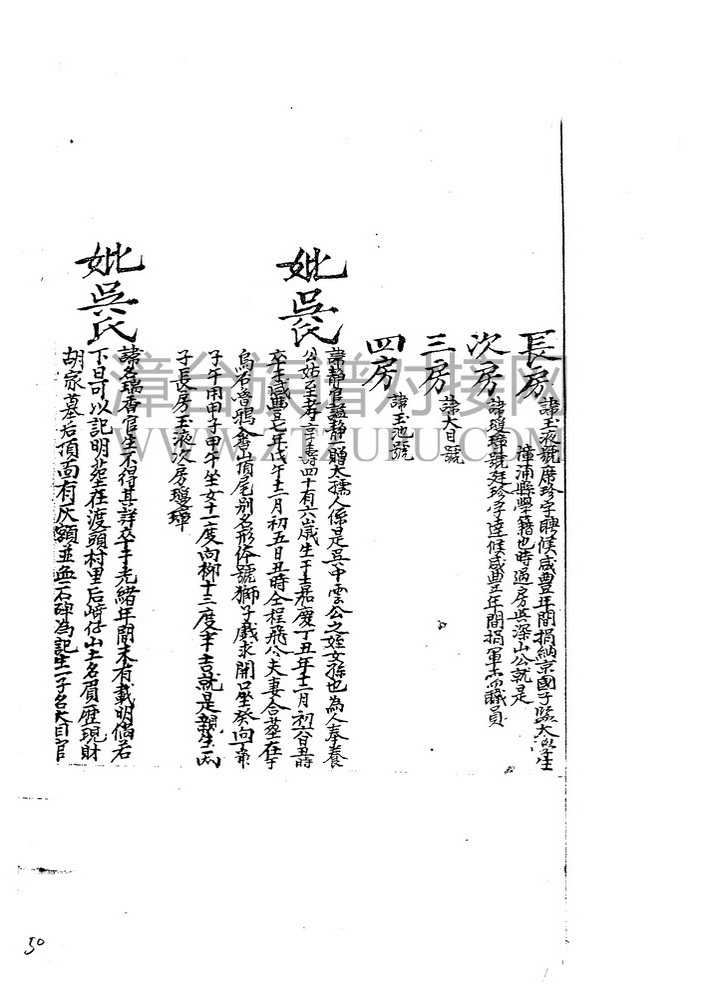 長房 諱玉液號席珍字聘候咸豊年間捐納京國子監太學生
漳浦縣學籍也時過房與深山公就是
次房 諱瓊璋號廷珍字達候咸豊年間捐軍功職員
三房 諱大目號
四房 諱玉池號
妣吳氏 諱靜官諡靜一贈大孺人係是吳中雲公之姪女孫也為人奉養
公姑至孝享壽四十有六歲生于嘉慶丁丑年十二月初六日丑時
卒于咸豊七年戊午十二月初五日丑時仝程飛公夫妻合塟在于
烏石 鴉 山頂尾別名形 號獅子戲求開口坐癸向丁兼
子午用甲子甲午坐女十一度向柳十三度半吉就是親生兩
子長房玉液次房瓊璋
妣吳氏 諱名瑞香官生不得其詳卒于光緒年間未有載明倘若
下日可以記明塟在渡頭村里后崎仔山土名 厝現財
胡家墓后頂面有灰額並無石碑為記生一子名大目官
漳台族谱对接网
WWW.ZTZUPU.COM
50